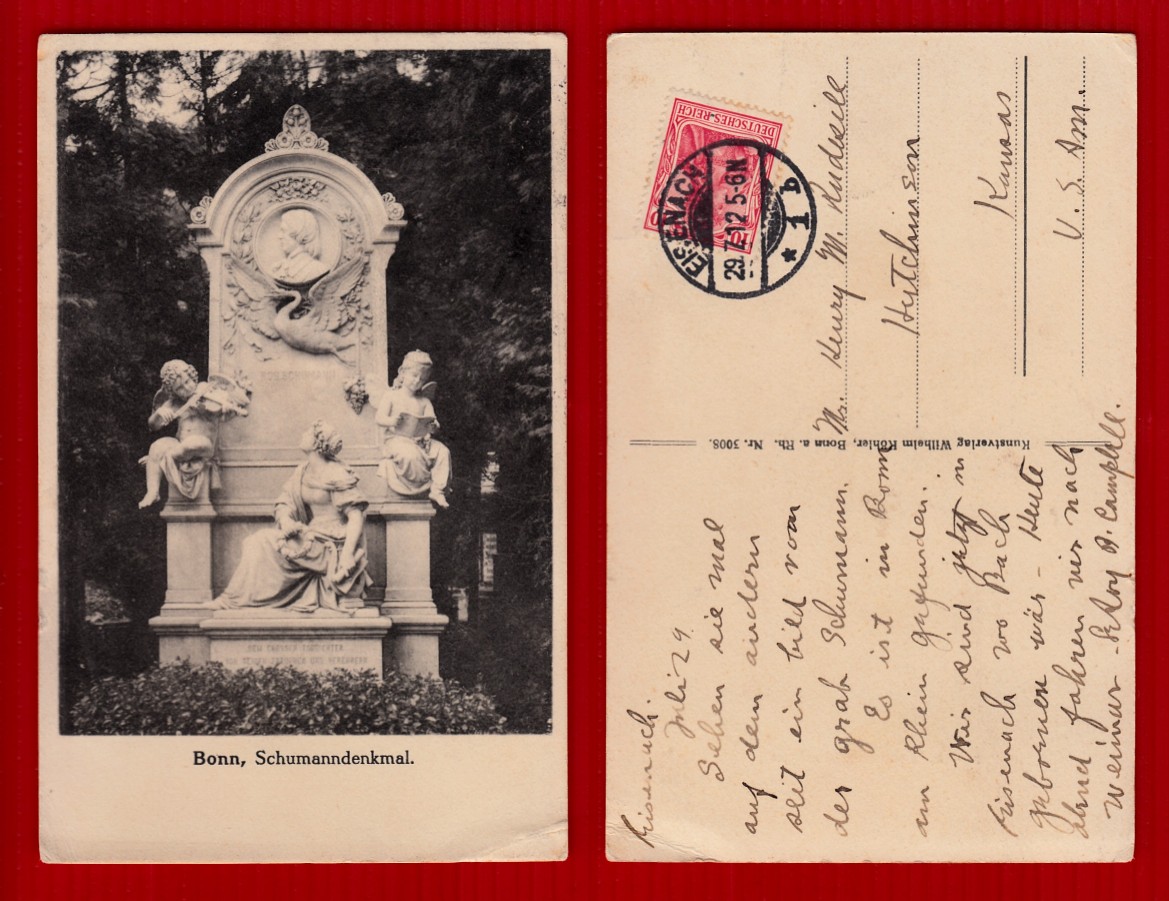 ROB. SCHUMANN
DEM GROSSEN TONDICHTER
VON SEINEN FREUNDEN UND VEREHRERN
Bonn, Schumanndenkmal.
DEUTSCHES REICH
10
EISENACH
29.7.12 5-6N
* 1 b
Mr. Henry M. Rudesill
Hutchinson
Kansas
U. S. Am.
Kunstverlag Wilhelm Köhler, Bonn a. Rh. Nr. 3008.
Eisenach.
Juli 29.
Sehen sie mal
auf dem andern
seit ein bild vom
der grab Schumann.
Es ist in Bonn
am Rhein gefunden.
Wir sind jetzt in
Eisenach wo Bach
geboren wär - Heute
abend fahren wir nach
Weimar - Campbell.